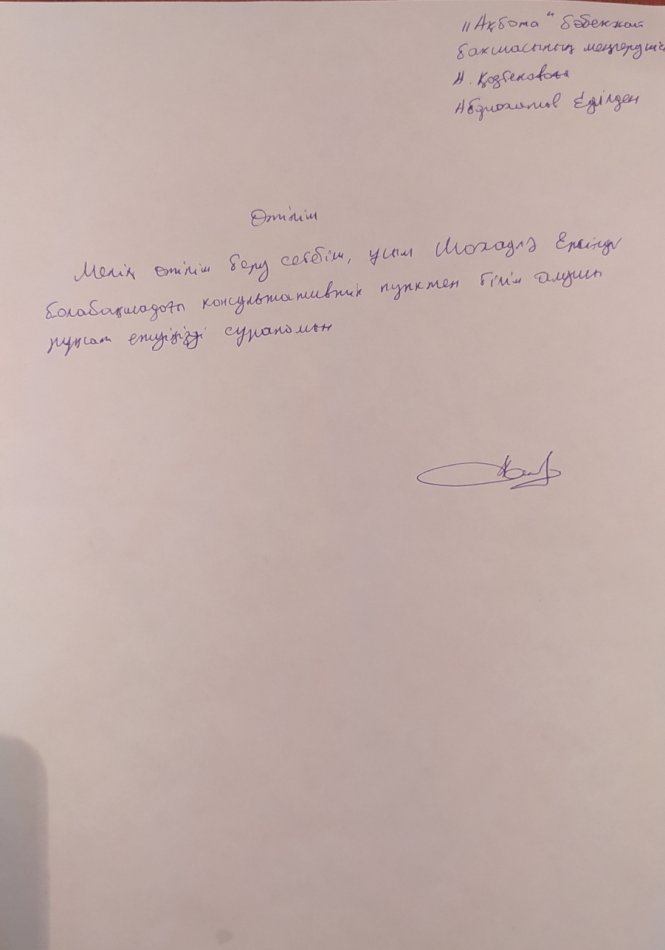 „Ақбота" бөбекжай
бақшасының меңгерушісі
А. Қазбековаға
Еділден
Өтініш
Менің өтініш беру себебім, ұлым
балабақшадағы консультативтік пунктен білім алуына
рұқсат етуіңізді сұраймын